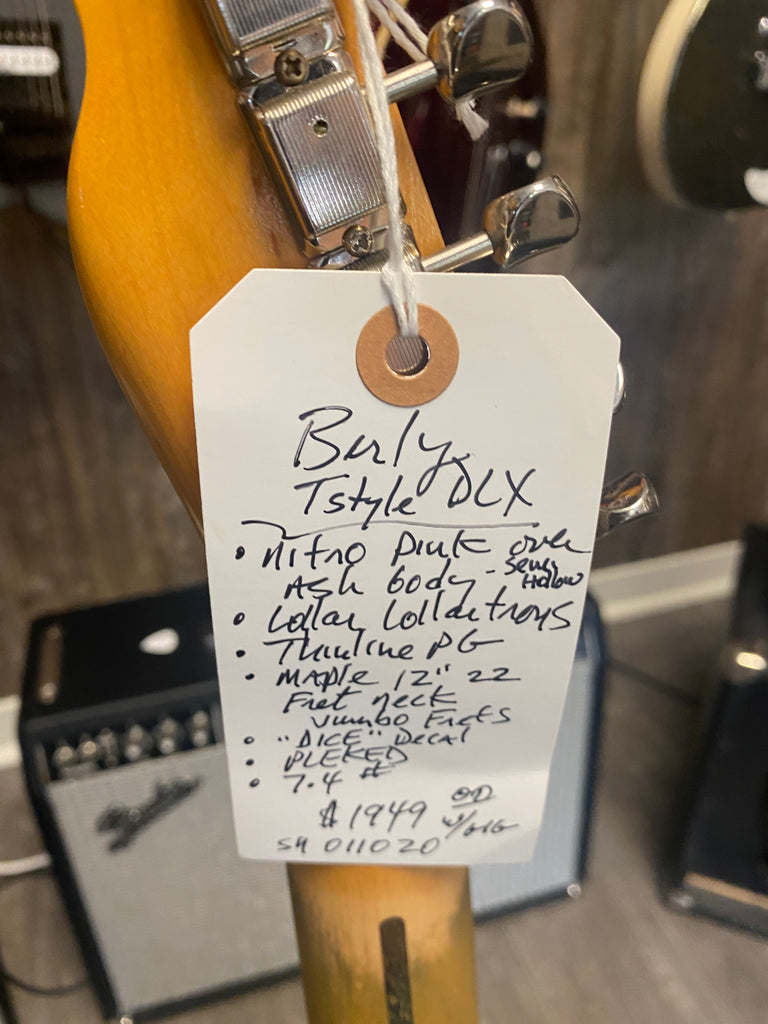 Berly
Tstyle DLX
• Nitro Pink over
Ash body - Semi
Hollow
• Lollar Lollartrons
• Thinline PG
• MAPle 12" 22
Fret neck
Jumbo Frets
• "DICE" Decal
• PLEKED
• 7.4 #
$1949 w/GIG
SN 011020
Fender